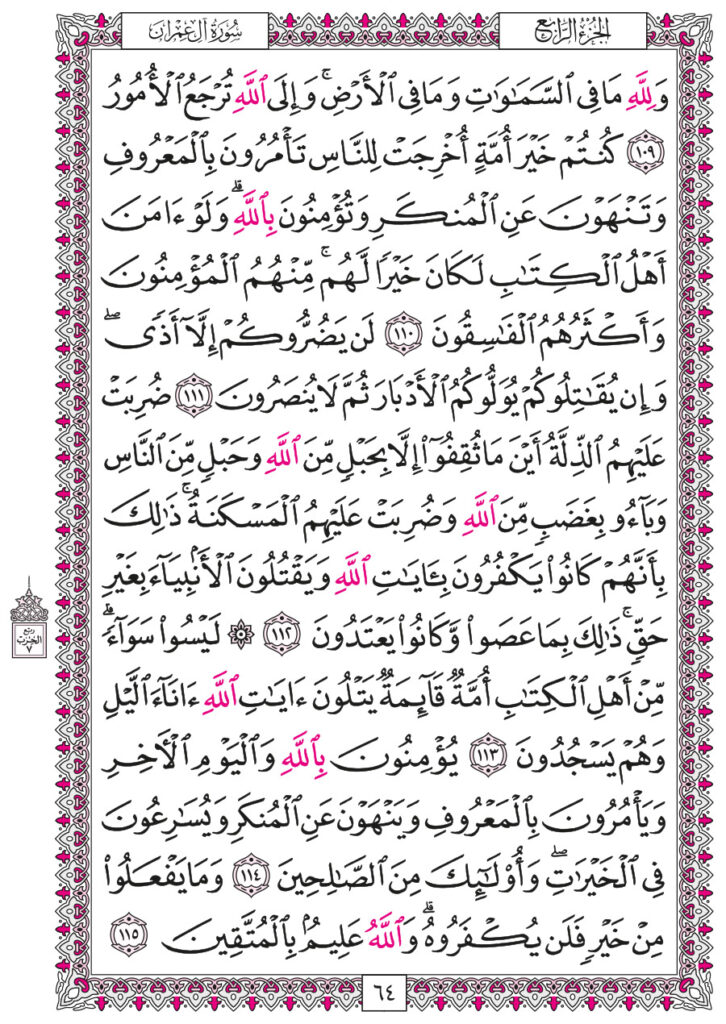 الجُزْءُ الرَّابِعُ
سُورَةُ آلِ عِمْرَانَ
وَلِلَّهِ مَا فِي ٱلسَّمَٰوَٰتِ وَمَا فِي ٱلْأَرْضِۚ وَإِلَى ٱللَّهِ تُرْجَعُ ٱلْأُمُورُ
١٠٩ كُنتُمْ خَيْرَ أُمَّةٍ أُخْرِجَتْ لِلنَّاسِ تَأْمُرُونَ بِٱلْمَعْرُوفِ
وَتَنْهَوْنَ عَنِ ٱلْمُنكَرِ وَتُؤْمِنُونَ بِٱللَّهِۗ وَلَوْ ءَامَنَ
أَهْلُ ٱلْكِتَٰبِ لَكَانَ خَيْرًا لَّهُمۚ مِّنْهُمُ ٱلْمُؤْمِنُونَ
وَأَكْثَرُهُمُ ٱلْفَٰسِقُونَ ١١٠ لَن يَضُرُّوكُمْ إِلَّآ أَذًىۖ
وَإِن يُقَٰتِلُوكُمْ يُوَلُّوكُمُ ٱلْأَدْبَارَ ثُمَّ لَا يُنصَرُونَ ١١١ ضُرِبَتْ
عَلَيْهِمُ ٱلذِّلَّةُ أَيْنَ مَا ثُقِفُوٓا۟ إِلَّا بِحَبْلٍ مِّنَ ٱللَّهِ وَحَبْلٍ مِّنَ ٱلنَّاسِ
وَبَآءُو بِغَضَبٍ مِّنَ ٱللَّهِ وَضُرِبَتْ عَلَيْهِمُ ٱلْمَسْكَنَةُۚ ذَٰلِكَ
بِأَنَّهُمْ كَانُوا۟ يَكْفُرُونَ بِـَٔايَٰتِ ٱللَّهِ وَيَقْتُلُونَ ٱلْأَنۢبِيَآءَ بِغَيْرِ
حَقٍّۚ ذَٰلِكَ بِمَا عَصَوا۟ وَّكَانُوا۟ يَعْتَدُونَ ١١٢ ۞ لَيْسُوا۟ سَوَآءًۗ
مِّنْ أَهْلِ ٱلْكِتَٰبِ أُمَّةٌ قَآئِمَةٌ يَتْلُونَ ءَايَٰتِ ٱللَّهِ ءَانَآءَ ٱلَّيْلِ
وَهُمْ يَسْجُدُونَ ١١٣ يُؤْمِنُونَ بِٱللَّهِ وَٱلْيَوْمِ ٱلْأَخِرِ
وَيَأْمُرُونَ بِٱلْمَعْرُوفِ وَيَنْهَوْنَ عَنِ ٱلْمُنكَرِ وَيُسَٰرِعُونَ
فِي ٱلْخَيْرَٰتِۖ وَأُو۟لَٰٓئِكَ مِنَ ٱلصَّٰلِحِينَ ١١٤ وَمَا يَفْعَلُوا۟
مِنْ خَيْرٍ فَلَن يُكْفَرُوهُۗ وَٱللَّهُ عَلِيمٌۢ بِٱلْمُتَّقِينَ ١١٥
ربع
الحزب
٧
٦٤